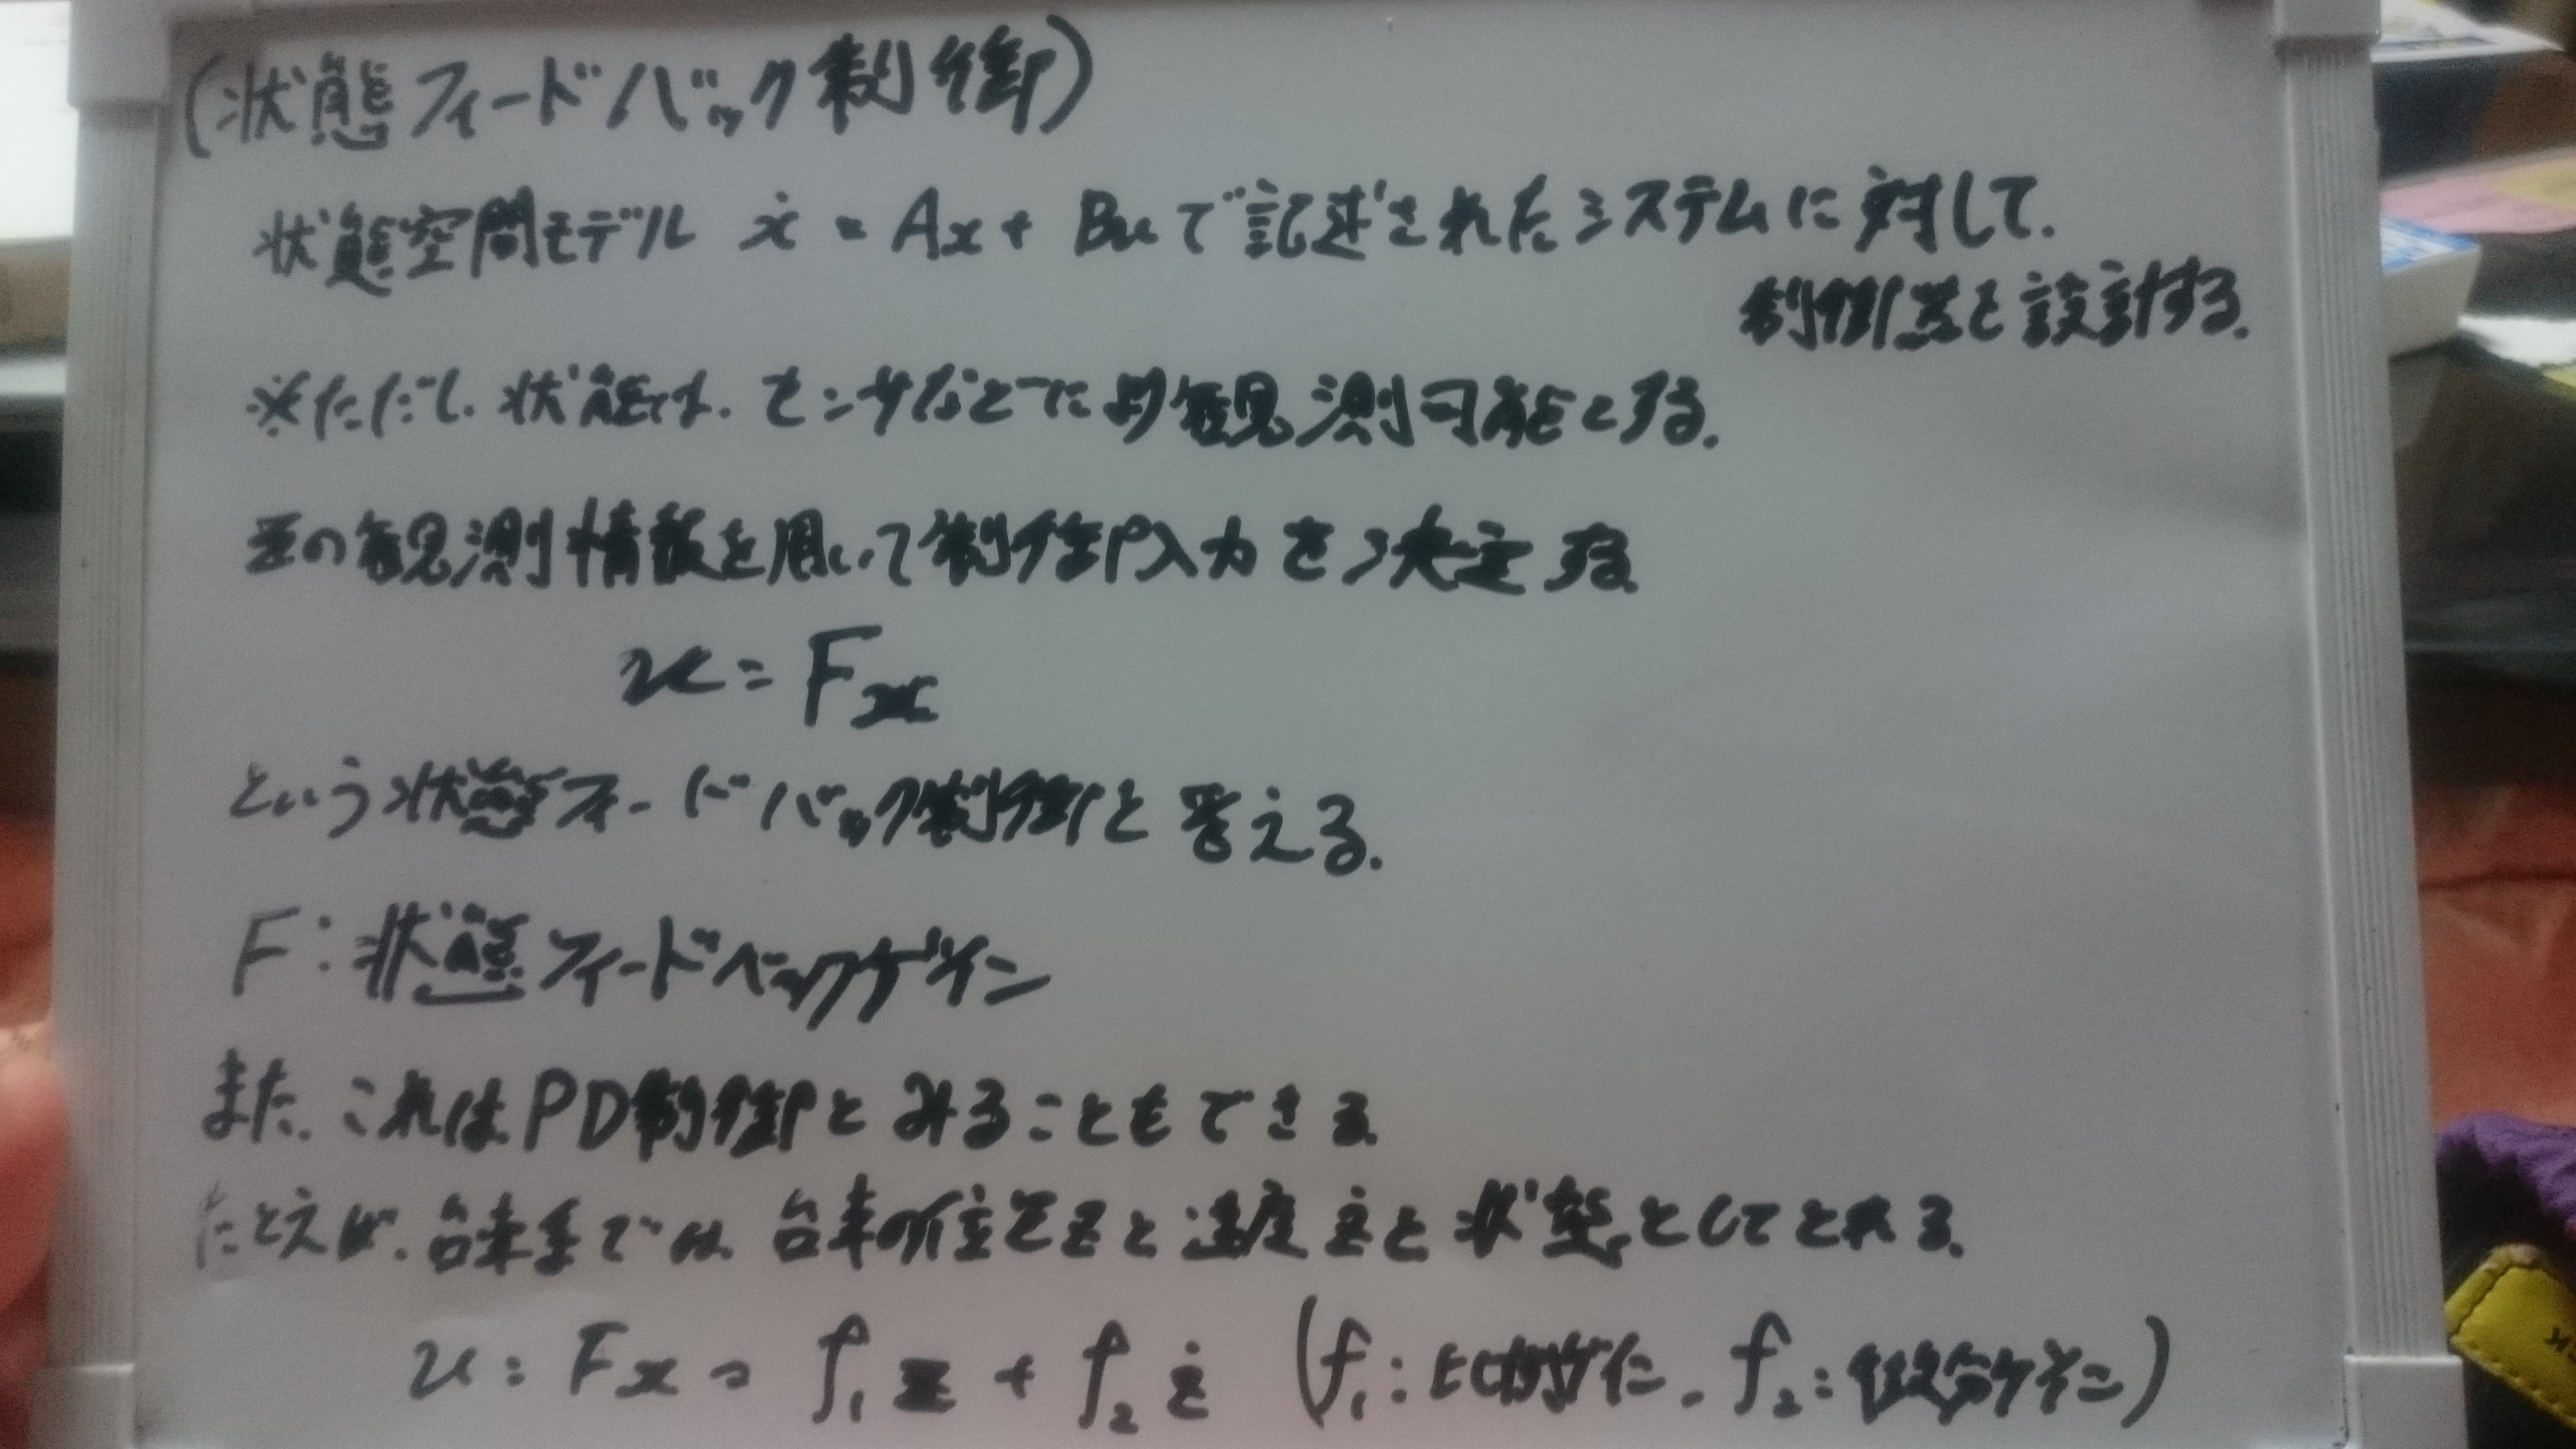 (状態フィードバック制御)
状態空間モデル ẋ = Ax + Bu で記述されたシステムに対して.
制御器を設計する.
※ただし、状態は、センサなどにより観測可能とする.
この観測情報を用いて制御入力を決定する.
u = Fx
という状態フィードバック制御を考える.
F:状態フィードバックゲイン
また、これはPD制御とみることもできる.
たとえば、台車系では、台車の位置zと速度żを状態としてとれる.
u = Fx = f₁z + f₂ż (f₁:比例ゲイン、f₂:微分ゲイン)